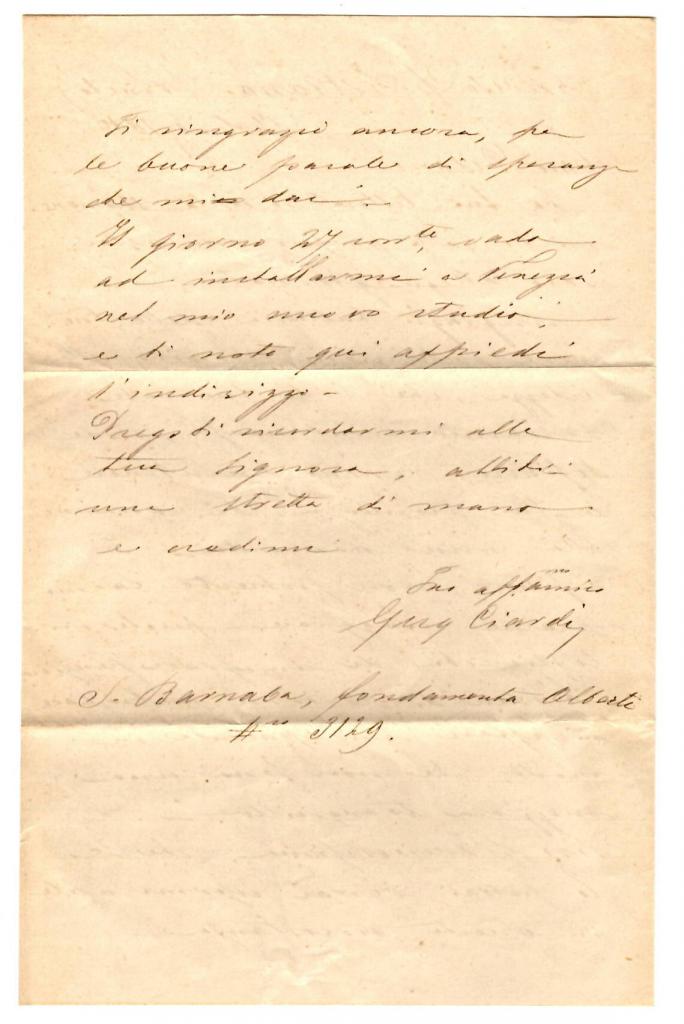 Ti ringrazio ancora, per
le buone parole di speranza
che mi dai.
Il giorno 27 corrte, vado
ad installarmi a Venezia
nel mio nuovo studio,
e ti noto qui appiedi
l'indirizzo -
Pregoti ricordarmi alla
tua Signora, abbiti
una stretta di mano
e credimi
Tuo affmo amico
Ciardi
S. Barnaba, fondamenta Alberti
No 3129.